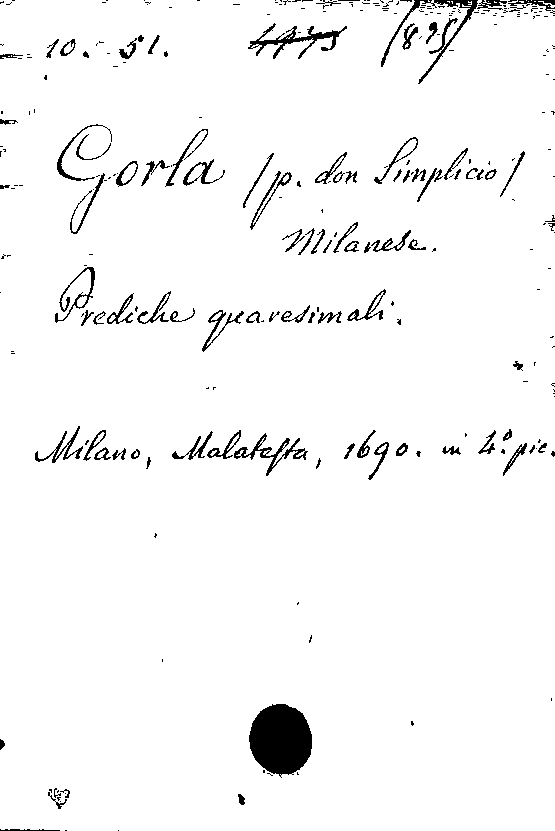 10. 51. 4975 (895)
Gorla (p. don Simplicio)
Milanese.
Prediche quaresimali.
Milano, Malatesta, 1690. in 4.° pic.